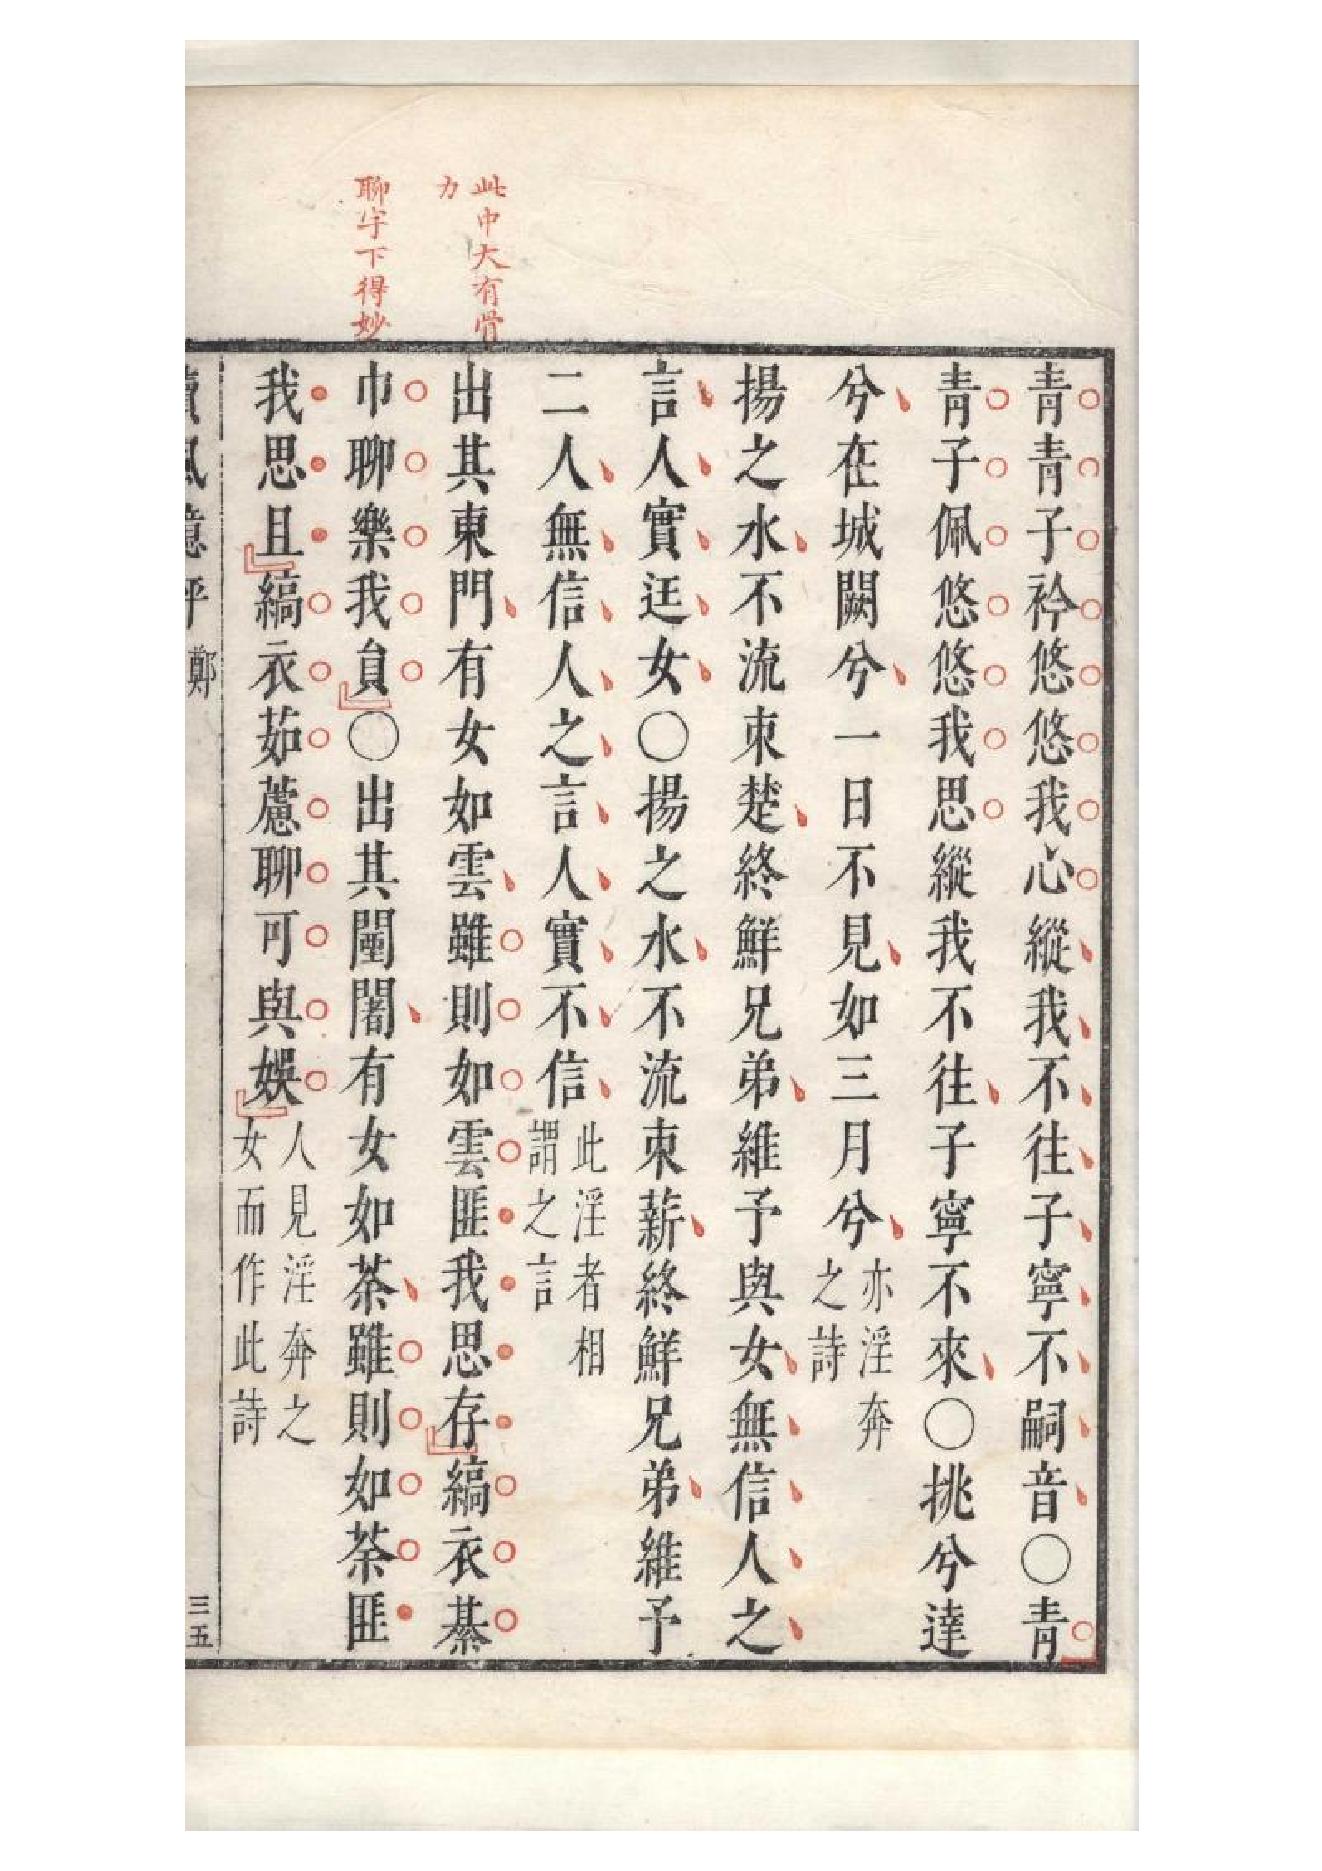 此中大有骨
力
聊字下得妙
青青子衿悠悠我心縱我不往子寧不嗣音〇青
青子佩悠悠我思縱我不往子寧不來〇挑兮達
兮在城闕兮一日不見如三月兮
亦淫奔
之詩
揚之水不流束楚終鮮兄弟維予與女無信人之
言人實迋女〇揚之水不流束薪終鮮兄弟維予
二人無信人之言人實不信
此淫者相
謂之言
出其東門有女如雲雖則如雲匪我思存縞衣綦
巾聊樂我員〇出其闉闍有女如荼雖則如荼匪
我思且縞衣茹藘聊可與娛
人見淫奔之
女而作此詩
讀風臆評
鄭
三五